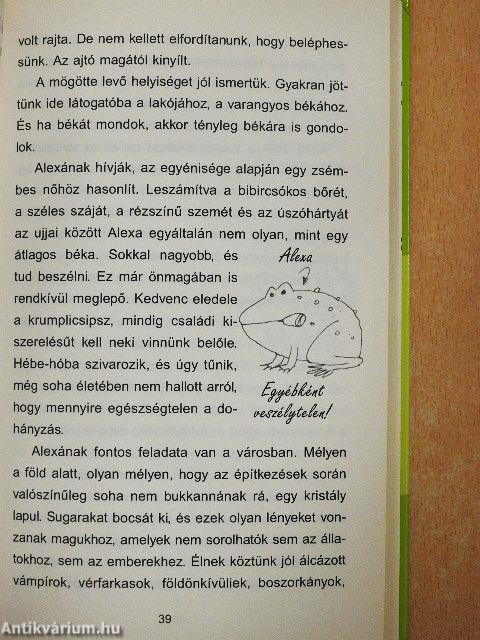 volt rajta. De nem kellett elfordítanunk, hogy beléphes-
sünk. Az ajtó magától kinyílt.
A mögötte levő helyiséget jól ismertük. Gyakran jöt-
tünk ide látogatóba a lakójához, a varangyos békához.
És ha békát mondok, akkor tényleg békára is gondo-
lok.
Alexának hívják, az egyénisége alapján egy zsém-
bes nőhöz hasonlít. Leszámítva a bibircsókos bőrét,
a széles száját, a rézszínű szemét és az úszóhártyát
az ujjai között Alexa egyáltalán nem olyan, mint egy
átlagos béka. Sokkal nagyobb, és
tud beszélni. Ez már önmagában is
rendkívül meglepő. Kedvenc eledele
a krumplicsipsz, mindig családi ki-
szerelésűt kell neki vinnünk belőle.
Hébe-hóba szivarozik, és úgy tűnik,
még soha életében nem hallott arról,
hogy mennyire egészségtelen a do-
hányzás.
Alexa
Egyébként
veszélytelen!
Alexának fontos feladata van a városban. Mélyen
a föld alatt, olyan mélyen, hogy az építkezések során
valószínűleg soha nem bukkannának rá, egy kristály
lapul. Sugarakat bocsát ki, és ezek olyan lényeket von-
zanak magukhoz, amelyek nem sorolhatók sem az álla-
tokhoz, sem az emberekhez. Élnek köztünk jól álcázott
vámpírok, vérfarkasok, földönkívüliek, boszorkányok,
39
Antikvárium.hu